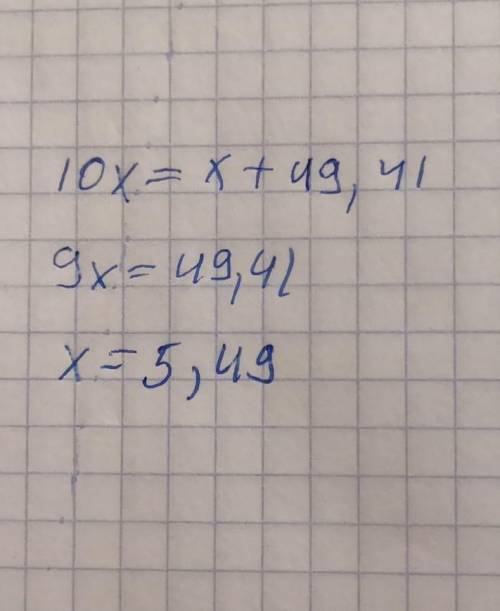 10x = x + 49,41
9x = 49,41
x = 5,49